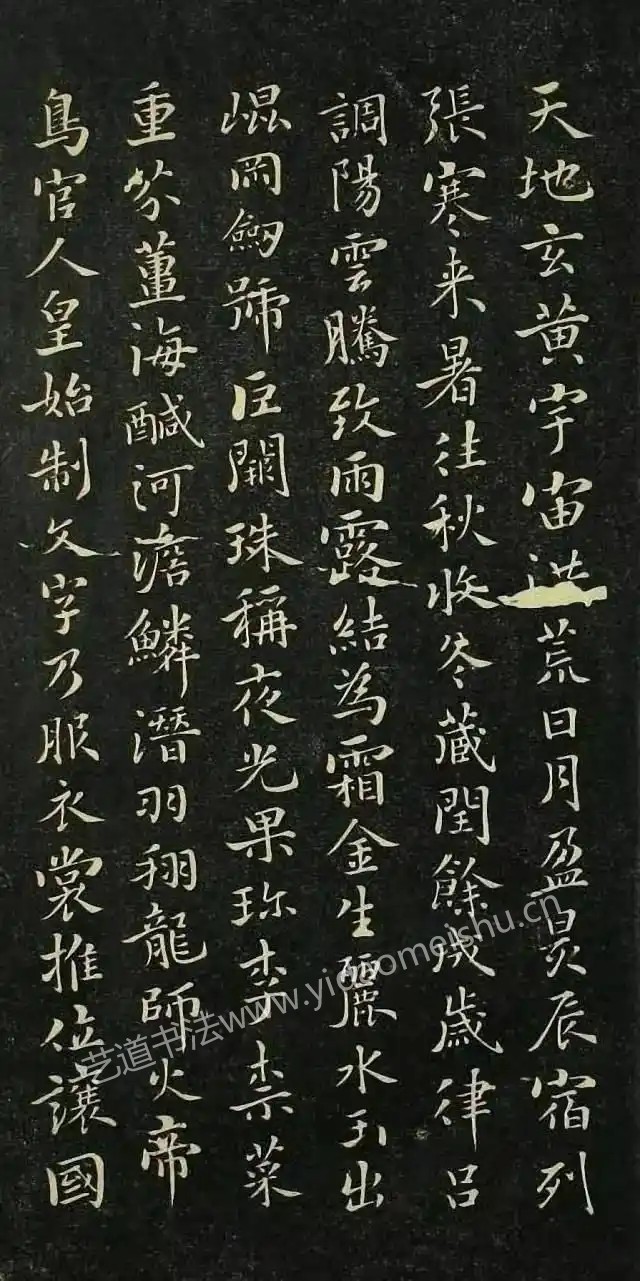 天地玄黃宇宙洪荒日月盈昃辰宿列
張寒来暑往秋收冬蔵閏餘成歲律呂
調陽雲騰致雨露結為霜金生麗水玉出
崐岡劒號巨闕珠稱夜光果珎李柰菜
重芥薑海醎河澹鱗潛羽翔龍師火帝
鳥官人皇始制文字乃服衣裳推位讓國
艺道书法www.yidaomeishu.cn